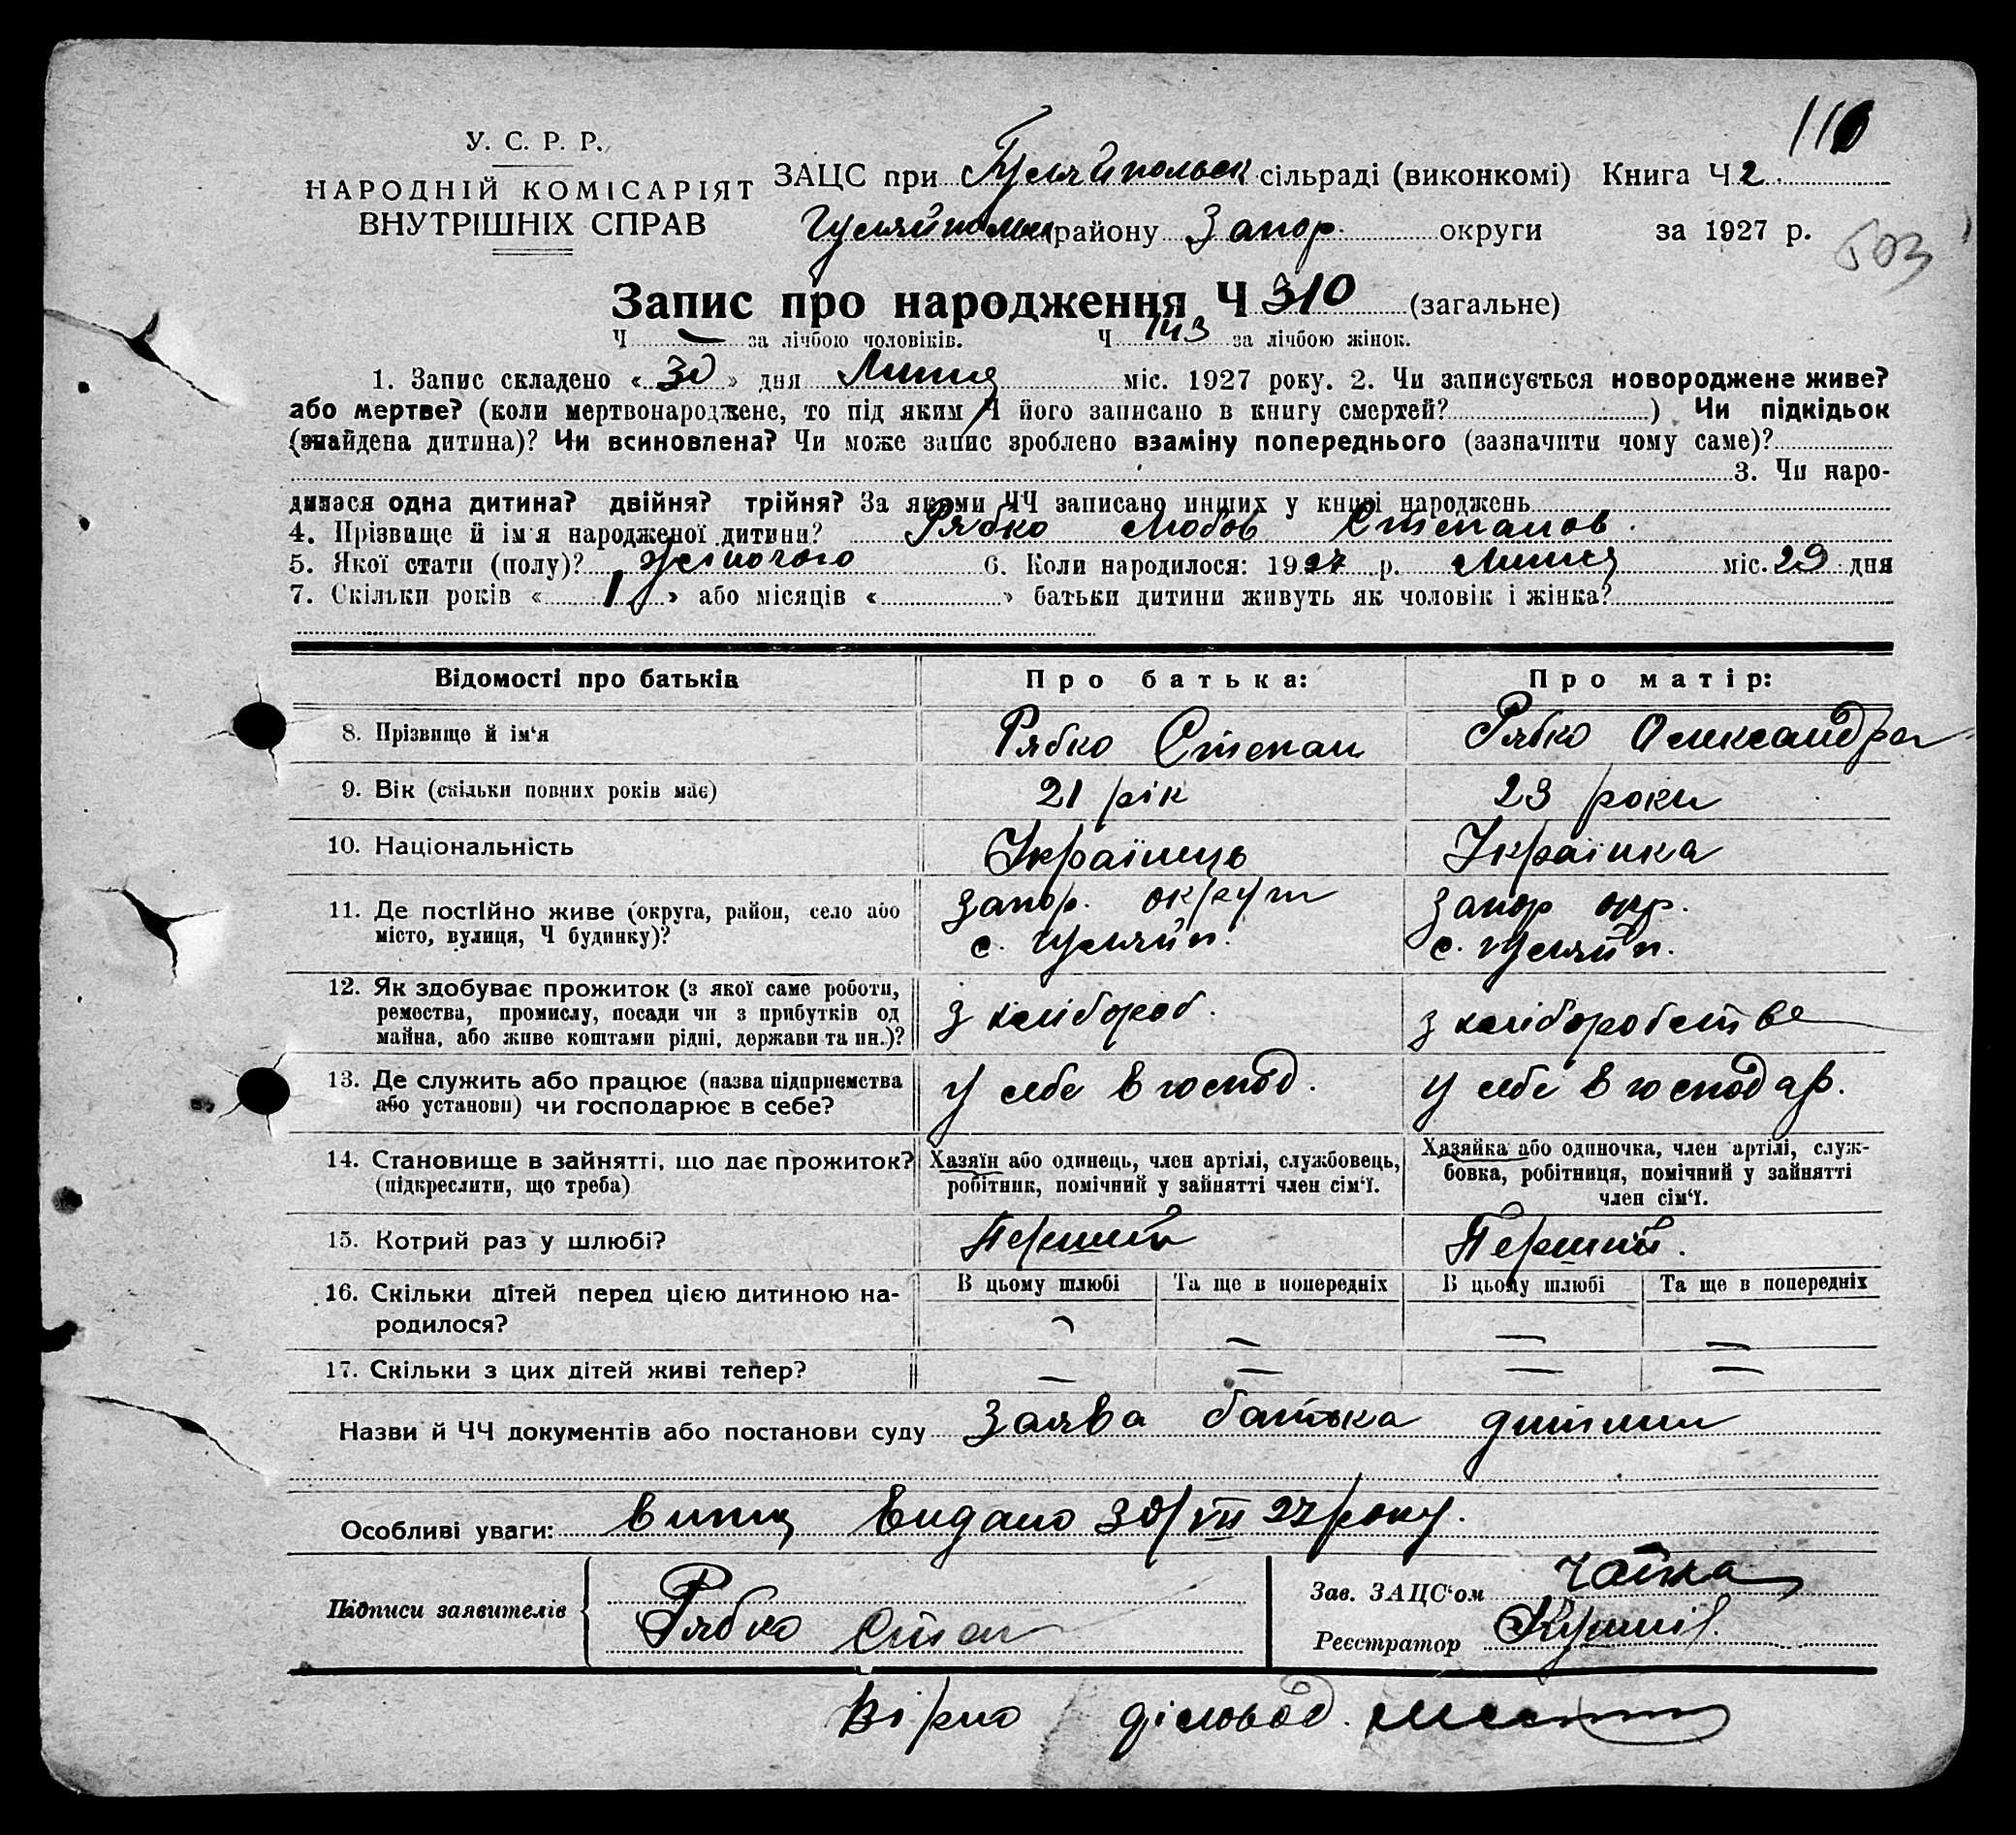 110
У. С. Р. Р.
НАРОДНІЙ КОМІСАРІЯТ
ВНУТРІШНІХ СПРАВ
ЗАЦС при Гуляйпольск сільраді (виконкомі) Книга Ч 2
Гуляйпольск району Запор. округи за 1927 р.
503
Запис про народження Ч 310 (загальне)
Ч — за лічбою чоловіків. Ч 143 за лічбою жінок.
1. Запис складено « 30 » дня Липня міс. 1927 року. 2. Чи записується новороджене живе?
або мертве? (коли мертвонароджене, то під яким Ч його записано в книгу смертей? ) Чи підкідьок
(знайдена дитина)? Чи всиновлена? Чи може запис зроблено взаміну попереднього (зазначити чому саме)?
3. Чи наро-
дилася одна дитина? двійня? трійня? За якими ЧЧ записано инших у книзі народжень
4. Прізвище й ім'я народженої дитини? Рябко Любов Степанов.
5. Якої стати (полу)? жіночого 6. Коли народилося: 1927 р. Липня міс. 29 дня
7. Скільки років « 1 » або місяців « » батьки дитини живуть як чоловік і жінка?
Відомості про батьків Про батька: Про матір:
8. Прізвище й ім‘я Рябко Степан Рябко Олександра
9. Вік (скільки повних років має) 21 рік 23 роки
10. Національність Українець Українка
11. Де постійно живе (округа, район, село або
місто, вулиця, Ч будинку)?
Запор. округи
с. Гуляйп.
Запор окр.
с. Гуляйп.
12. Як здобуває прожиток (з якої саме роботи,
ремества, промислу, посади чи з прибутків од
майна, або живе коштами рідні, держави та ин.)?
з хлібороб. з хліборобства
13. Де служить або працює (назва підприємства
або установи) чи господарює в себе?
У себе в господ. У себе в господар.
14. Становище в зайнятті, що дає прожиток?
(підкреслити, що треба)
Хазяїн або одинець, член артілі, службовець,
робітник, помічний у зайнятті член сім‘ї.
Хазяйка або одиночка, член артілі, служ-
бовка, робітниця, помічний у зайнятті
член сім‘ї.
15. Котрий раз у шлюбі? Перший Перший.
16. Скільки дітей перед цією дитиною на-
родилося?
В цьому шлюбі Та ще в попередніх В цьому шлюбі Та ще в попередніх
— — — —
17. Скільки з цих дітей живі тепер? — — — —
Назви й ЧЧ документів або постанови суду Заява батька дитини
Особливі уваги: випис видано 30/VII 27 року.
Підписи заявителів Рябко Степан
Зав. ЗАЦС‘ом Чайка
Реєстратор
Вірно діловод.